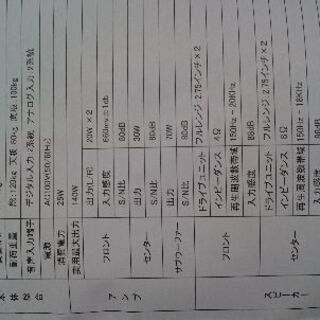 耐荷重量 総:120kg 天板 80kg 底板:100kg
音声入力端子 デジタル入力 2系統 アナログ入力 2系統
電源 AC100V(50/60Hz)
消費電力 25W
実用最大出力 140W
アンプ
フロント
出力(L/R) 20W × 2
入力感度 660mv±1db
S/N比 80dB
センター
出力 30W
S/N比 80dB
サブウーファー
出力 70W
S/N比 80dB
スピーカー
フロント
ドライブユニット フルレンジ・2.75インチ×2
インピーダンス 4Ω
再生周波数帯域 150Hz~20KHz
入力感度 80dB
センター
ドライブユニット フルレンジ・2.75インチ×2
インピーダンス 8Ω
再生周波数帯域 150Hz~18KHz
入力感度